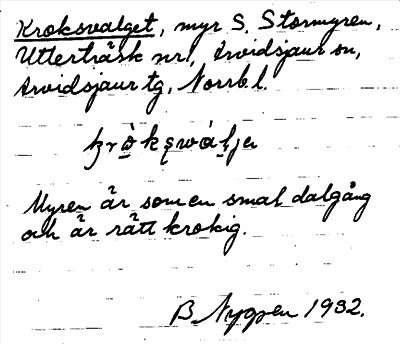 Kroksvalget, myr S. Stormyren,
Utterträsk nr 1, Arvidsjaur sn,
Arvidsjaur tg, Norrb. l.
Myren är som en smal dalgång
och är rätt krokig.
B Nygren 1932.